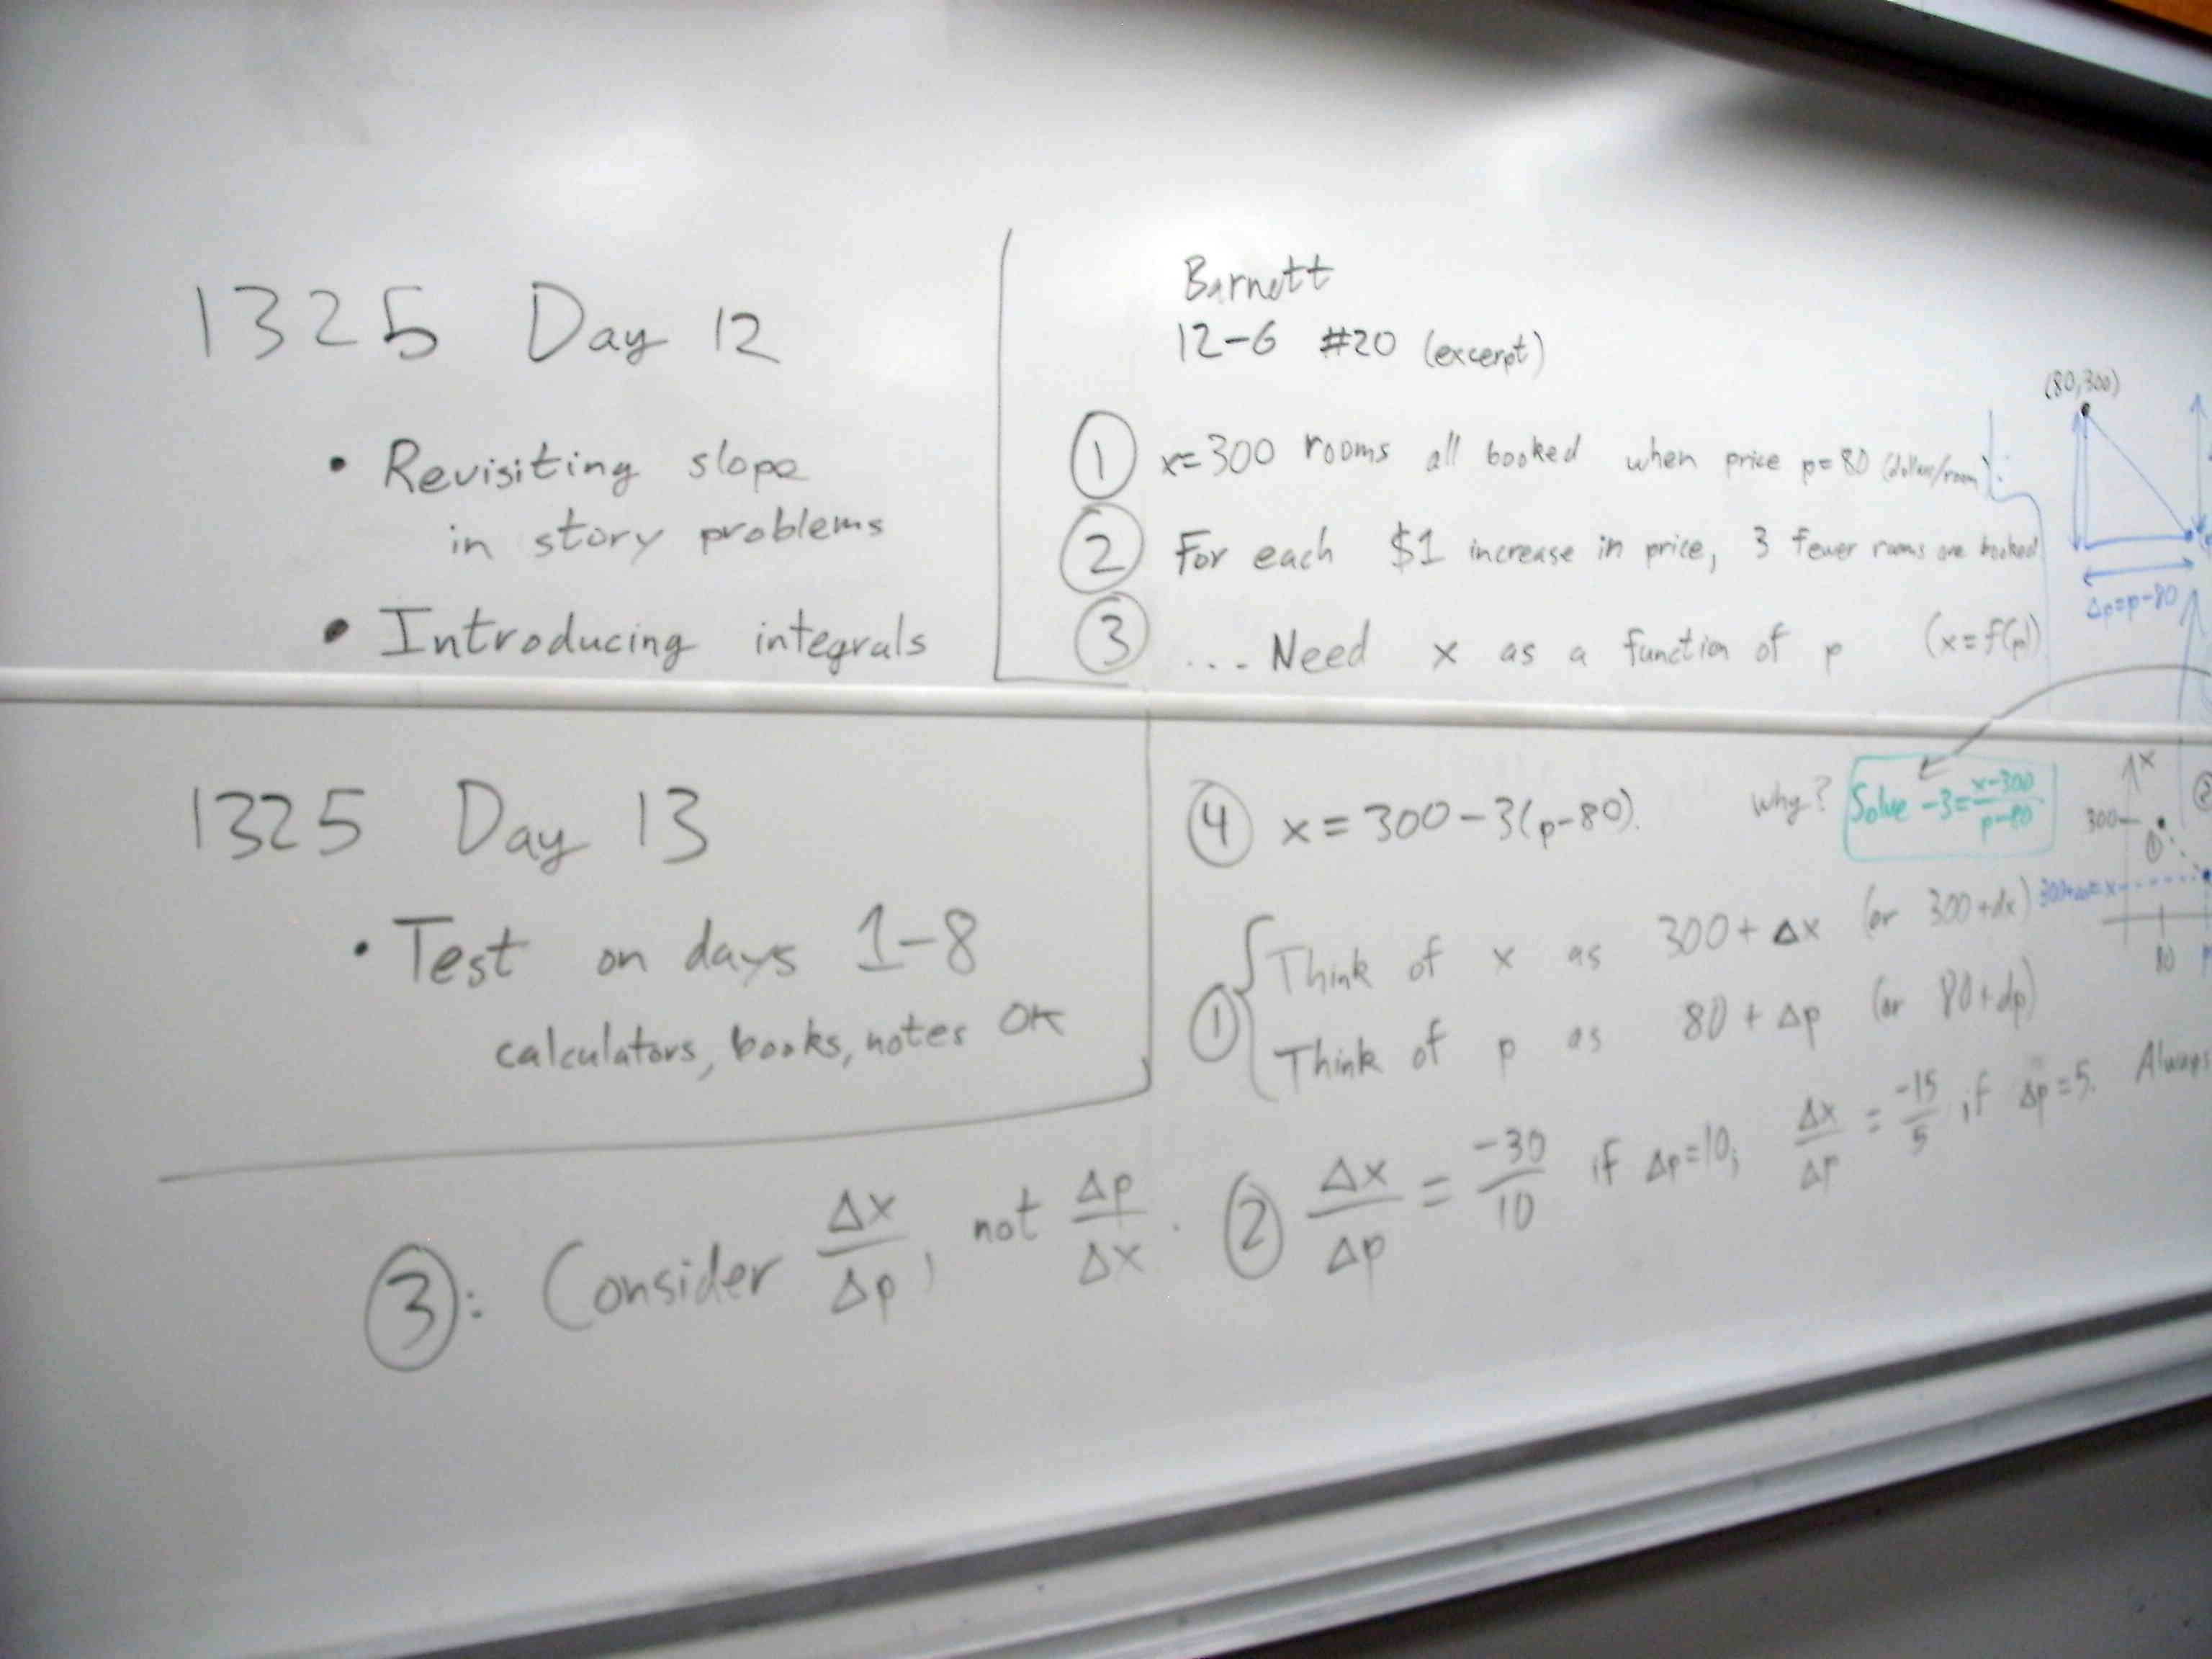 1325 Day 12
• Revisiting slope
in story problems
• Introducing integrals
Barnett
12-6 #20 (excerpt)
① x=300 rooms all booked when price p=80 (dollars/room)
② For each $1 increase in price, 3 fewer rooms are booked
③ ... Need x as a function of p (x=f(p))
(80,300)
Δp=p-80
1325 Day 13
• Test on days 1-8
calculators, books, notes OK
④ x=300-3(p-80). why? Solve -3=\frac{x-300}{p-80}
① { Think of x as 300+Δx (or 300+dx)
Think of p as 80+Δp (or 80+dp)
x
②
300
①
80
p
③: Consider \frac{Δx}{Δp}, not \frac{Δp}{Δx}. ② \frac{Δx}{Δp} = \frac{-30}{10} if Δp=10; \frac{Δx}{Δp} = \frac{-15}{5} if Δp=5. Always